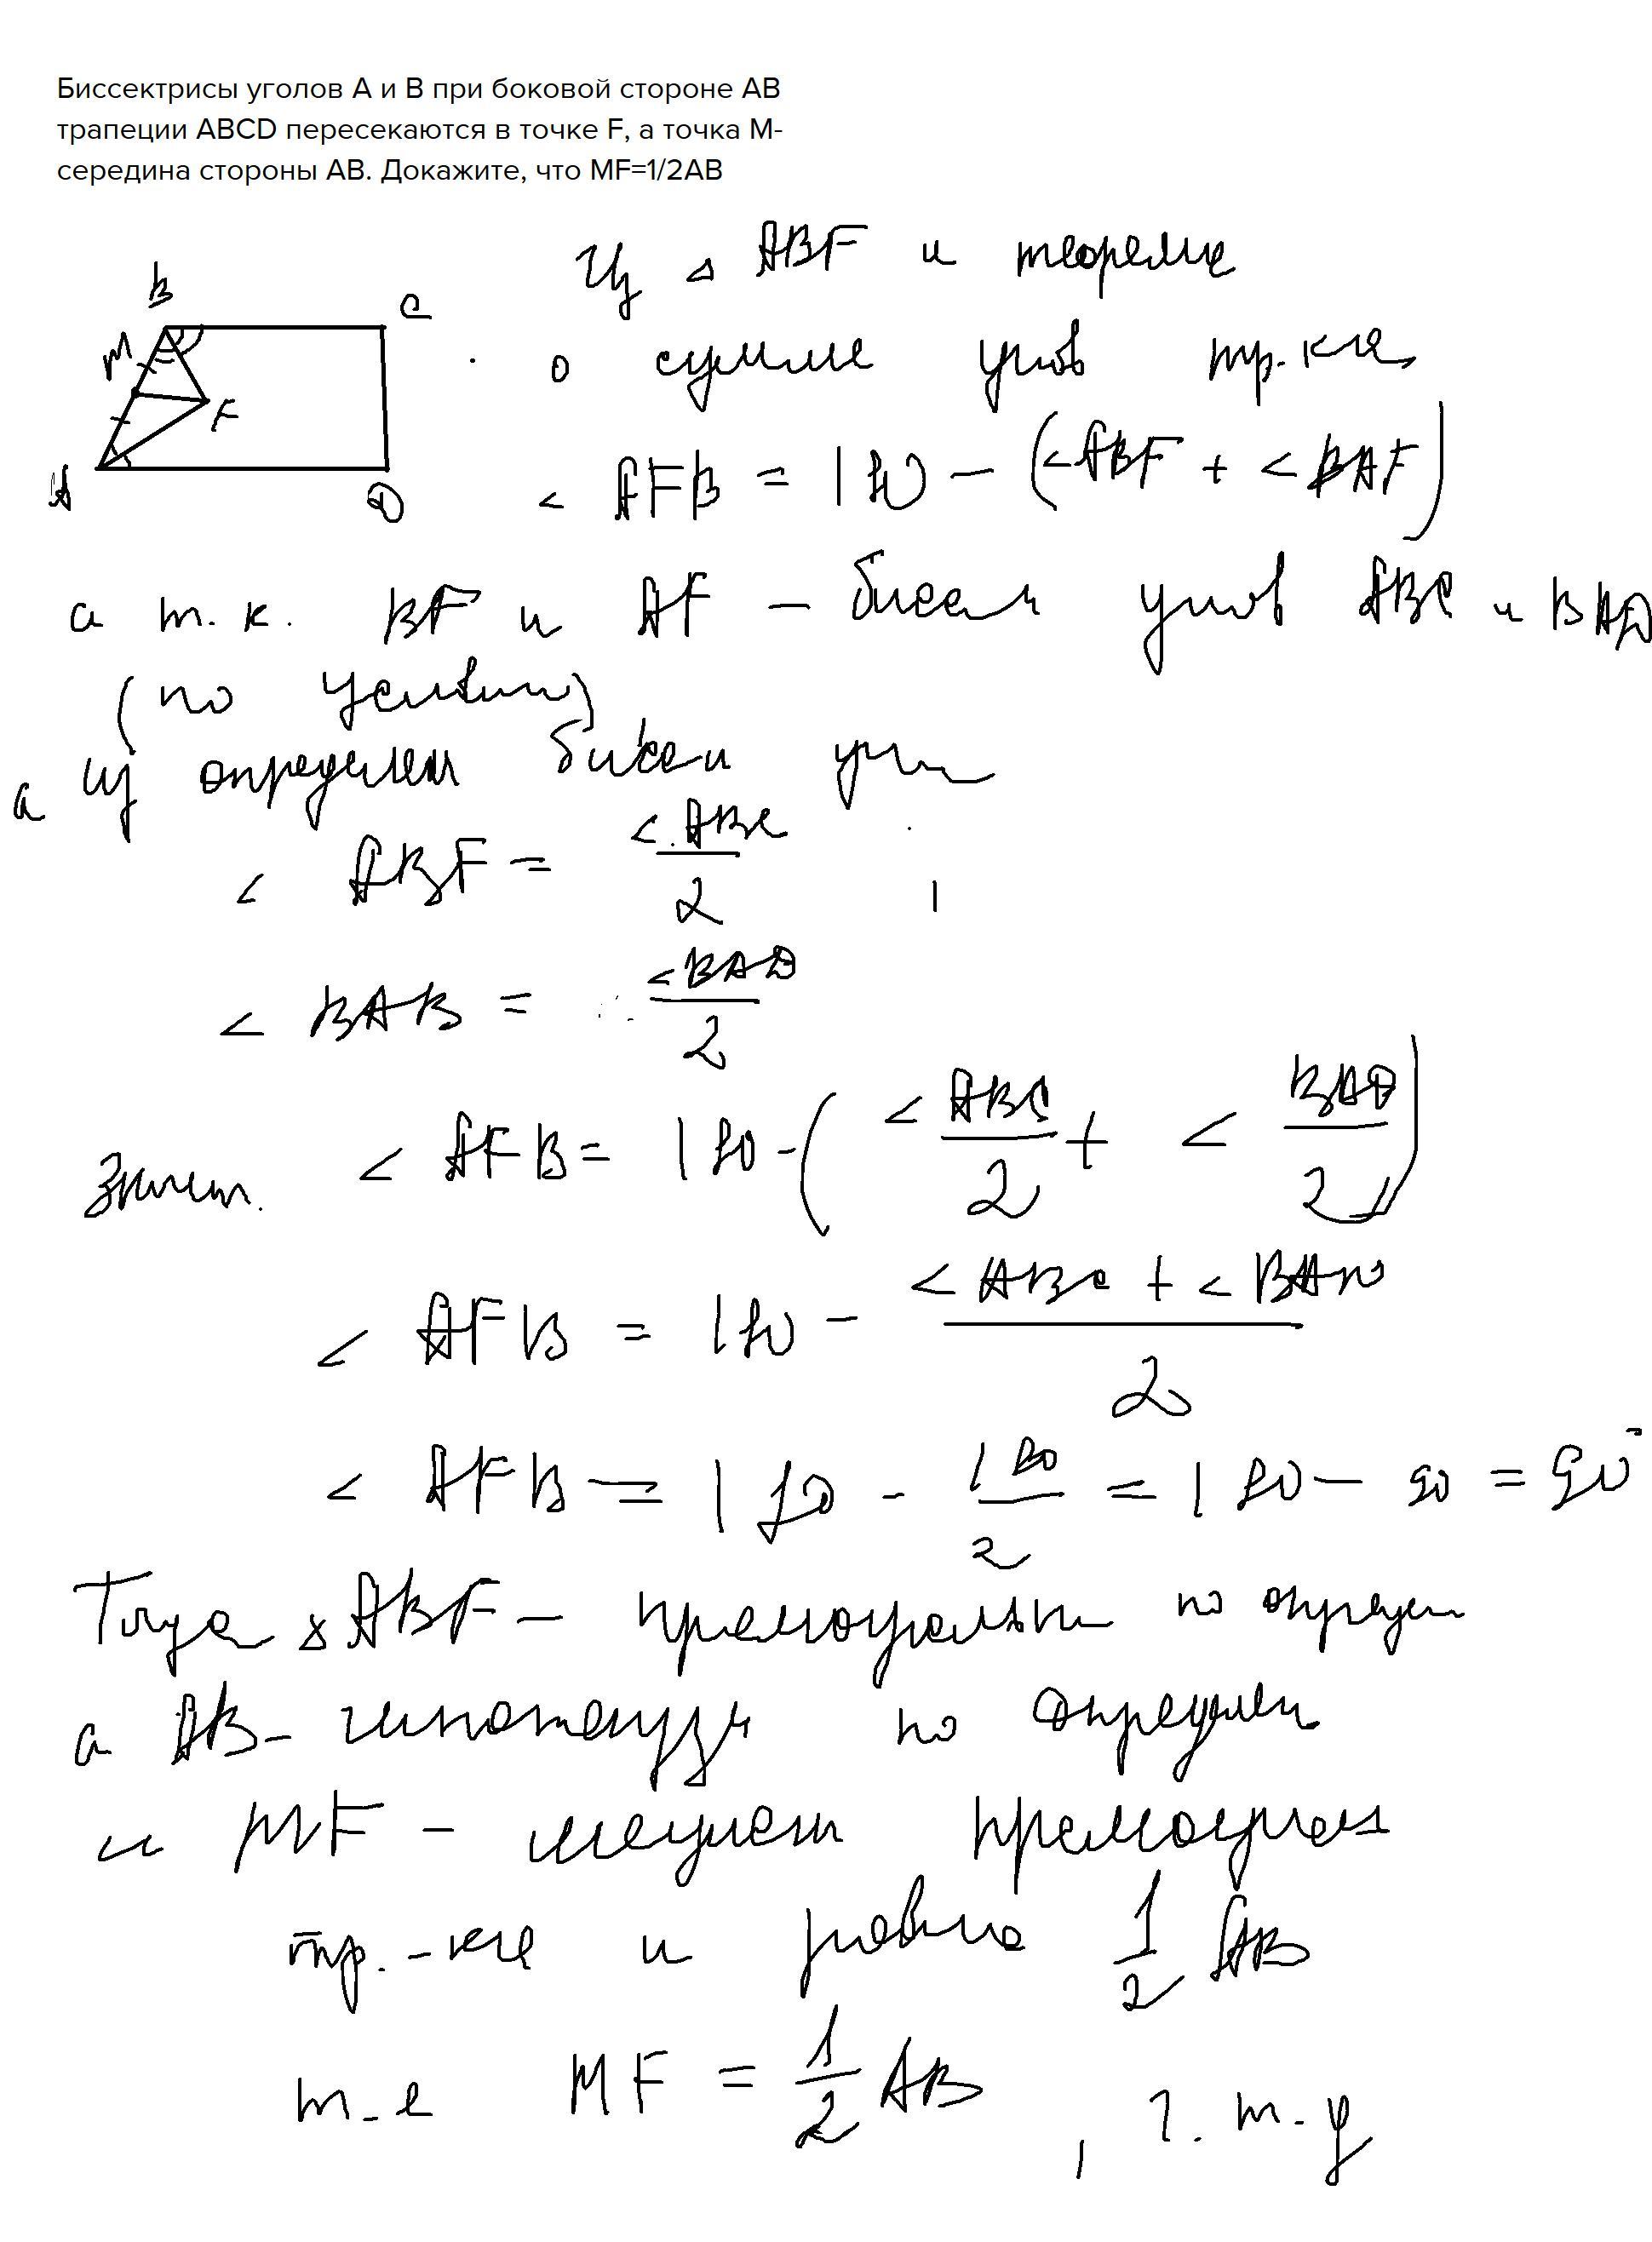 Биссектрисы уголов A и B при боковой стороне AB
трапеции ABCD пересекаются в точке F, а точка M-
середина стороны AB. Докажите, что MF=1/2AB
Из △ ABF и теореме
B
C
M
F
A
D
о сумме углов тр.ка,
< AFB = 180 - (<ABF + <BAF)
а т.к. BF и AF - биссект углов ABC и BAD
(по условию)
а из определен биссек угла
< ABF = <ABC/2
< BAB = <BAD/2
Значит. < AFB = 180 - (<ABC/2 + <BAD/2)
< AFB = 180 - <ABC + <BAD/2
< AFB = 180 - 180/2 = 180 - 90 = 90°
Тогда △ABF - прямоугольн по определ
а AB - гипотенуза по определен
и MF - медиан прямоугол
тр.-ка и равна 1/2 AB
т-е MF = 1/2 AB, ч.т-д